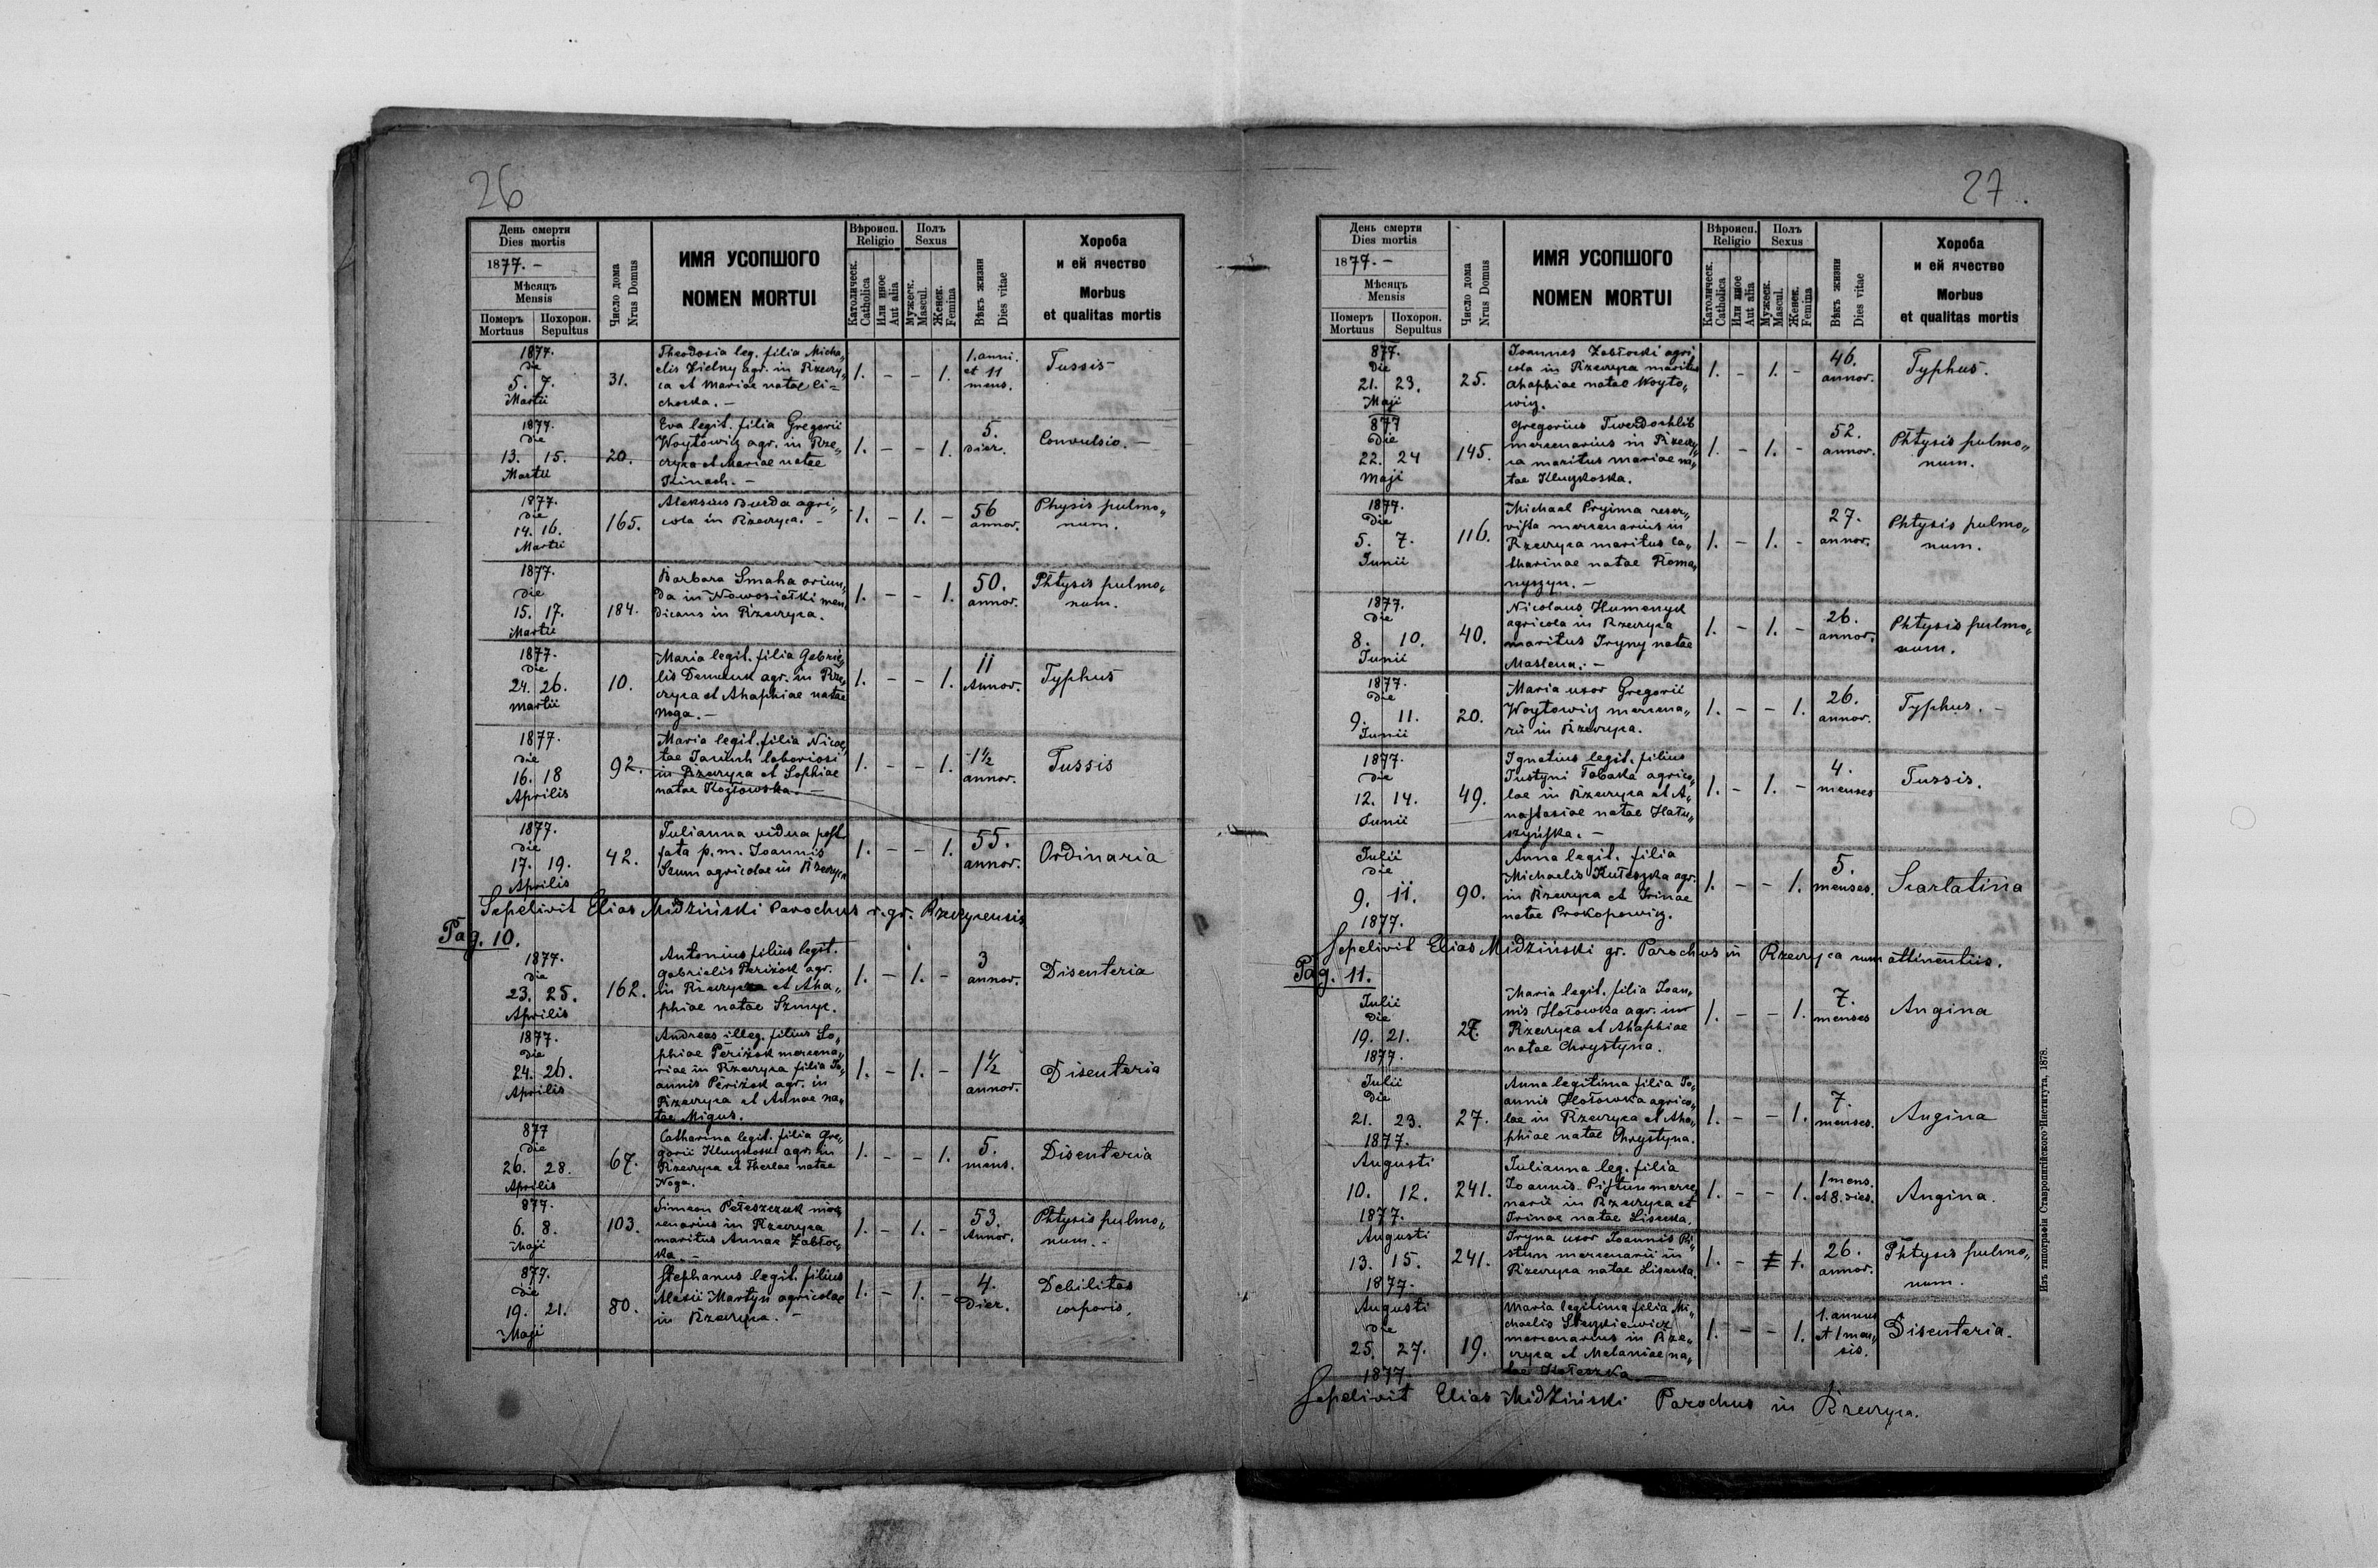 26
День смерти
Dies mortis
1877. –
Мѣсяцъ
Mensis
Померъ Mortuus
Похорон. Sepultus
Число дома
Nrus Domus
ИМЯ УСОПШОГО
NOMEN MORTUI
Вѣроисп.
Religio
Католическ.
Catholica
Или иное
Aut alia
Полъ
Sexus
Мужеск.
Mascul.
Женск.
Femina
Вѣкъ жизни
Dies vitae
Хороба
и ей ячество
Morbus
et qualitas mortis
1877.
die
5. 7.
Martii
31.
Theodosia leg. filia Micha„
elis Zielny agr. in Rzeczy„
ca et Mariae natae Li=
choska. –
1. – – 1.
1. anni.
et 11
mens.
Tussis
1877.
die
13. 15.
Martii
20.
Eva legit. filia Gregorii
Woytowicz agr. in Rze„
czyca et Mariae natae
Kinach. –
1. – – 1.
5.
dier.
Convulsio. –
1877.
die
14. 16.
Martii
165.
Aleksius Burda agri„
cola in Rzeczyca. –
1. – 1. –
56
annor.
Physis pulmo„
num.
1877.
die
15. 17.
Martii
184.
Barbara Smaha oriun„
da in Nowosiołki men„
dicans in Rzeczyca.
1. – – 1.
50.
annor.
Phtysis pulmo„
num.
1877.
die
24. 26.
Martii
10.
Maria legit. filia Gabrie„
lis Demczuk agr. in Rze„
czyca et Ahaphiae natae
Noga. –
1. – – 1.
11
Annor.
Typhus
1877.
die
16. 18
Aprilis
92.
Maria legit. filia Nice„
tae laboriosi
in Rzeczyca et Sophiae
natae Kozłowska. –
1. – – 1.
1½
annor.
Tussis
1877.
die
17. 19.
Aprilis
42.
Iulianna vidua post
fata p. m. Ioannis
Szum agricolae in Rzeczyca
1. – – 1.
55.
annor.
Ordinaria
Sepelivit Elias Midziński Parochus r. gr. Rzeczycensis
Pag. 10.
1877.
die
23. 25.
Aprilis
162.
Antonius filius legit.
Gabrielis Periżok agr.
in Rzeczyca et Aha„
phiae natae Szmyc.
1. – 1. –
3
annor.
Disenteria
1877.
die
24. 26.
Aprilis
Andreas illeg. filius So„
phiae Periżok mercena„
riae in Rzeczyca filia Io„
annis Periżok agr. in
Rzeczyca et Annae na„
tae Migus.
1. – 1. –
1½
annor.
Disenteria
877
die
26. 28.
Aprilis
67.
Catharina legit. filia Gre„
gorii Kluczkoski agr. in
Rzeczyca et Theclae natae
Noga.
1. – – 1.
5.
mens.
Disenteria
877.
6. 8.
Maji
103.
Simeon Peteszczuk mer„
cenarius in Rzeczyca
maritus Annae Zabłoc„
ka –
1. – 1. –
53.
Annor.
Phtysis pulmo„
num. –
877.
die
19. 21.
Maji
80.
Stephanus legit. filius
Alexii Martyn agricolae
in Rzeczyca. –
1. – 1. –
4.
Dier.
Debilitas
corporis.
27.
День смерти
Dies mortis
1877. –
Мѣсяцъ
Mensis
Померъ Mortuus
Похорон. Sepultus
Число дома
Nrus Domus
ИМЯ УСОПШОГО
NOMEN MORTUI
Вѣроисп.
Religio
Католическ.
Catholica
Или иное
Aut alia
Полъ
Sexus
Мужеск.
Mascul.
Женск.
Femina
Вѣкъ жизни
Dies vitae
Хороба
и ей ячество
Morbus
et qualitas mortis
877.
die
21. 23.
Maji
25.
Ioannes Zabłocki agri„
cola in Rzeczyca maritus
Ahaphiae natae Woyto„
wicz.
1. – 1. –
46.
annor.
Typhus.
877
die
22. 24
Maji
145.
Gregorius Twerdochlib
mercenarius in Rzeczy„
ca maritus Mariae na„
tae Kluczkoska.
1. – 1. –
52.
annor.
Phtysis pulmo„
num.
1877.
die
5. 7.
Iunii
116.
Michael Pryima reser„
vista mercenarius in
Rzeczyca maritus Ca„
tharinae natae Roma„
nyszyn. –
1. – 1. –
27.
annor.
Phtysis pulmo„
num.
1877.
die
8. 10.
Iunii
40.
Nicolaus Humenyck
agricola in Rzeczyca
maritus Iryny natae
Maslena. –
1. – 1. –
26.
annor.
Phtysis pulmo„
num.
1877.
die
9. 11.
Iunii
20.
Maria uxor Gregorii
Woytowicz mercena„
rii in Rzeczyca.
1. – – 1.
26.
annor.
Typhus. –
1877.
die
12. 14.
Iunii
49.
Ignatius legit. filius
Iustyni Tabaka agrico„
lae in Rzeczyca et A„
nastasiae natae Hału„
szyńska. –
1. – 1. –
4.
menses
Tussis.
Iulii
die
9. 11.
1877.
90.
Anna legit. filia
Michaelis Kuteszka agr.
in Rzeczyca et Irinae
natae Prokopowicz.
1. – – 1.
5.
menses.
Scarlatina
Sepelivit Elias Midziński gr. Parochus in Rzeczyca cum attinentiis.
Pag. 11.
Iulii
die
19. 21.
1877.
27.
Maria legit. filia Ioan„
nis Hołowka agr. in
Rzeczyca et Ahaphiae
natae Chrystyna.
1. – – 1.
7.
menses
Angina
Iulii
die
21. 23.
1877.
27.
Anna legitima filia Io„
annis Hołowka agrico„
lae in Rzeczyca et Aha„
phiae natae Chrystyna.
1. – – 1.
7.
menses.
Angina
Augusti
10. 12.
1877.
241.
Iulianna leg. filia
Ioannis Pistun merce„
narii in Rzeczyca et
Irinae natae Lisecka.
1. – – 1.
1 mens.
et 8. dies.
Angina.
Augusti
13. 15.
1877.
241.
Iryna uxor Ioannis Pi„
stun mercenarii in
Rzeczyca natae Lisecka.
1. – 1.
26.
annor.
Phtysis pulmo„
num.
Augusti
die
25. 27.
1877.
19.
Maria legitima filia Mi„
chaelis
mercenarius in Rze„
czyca et Melaniae na„
tae
1. – – 1.
1. annus
et 1 men„
sis.
Disenteria.
Sepelivit Elias Midziński Parochus in Rzeczyca.
Изъ типографіи Ставропигійского Института, 1878.